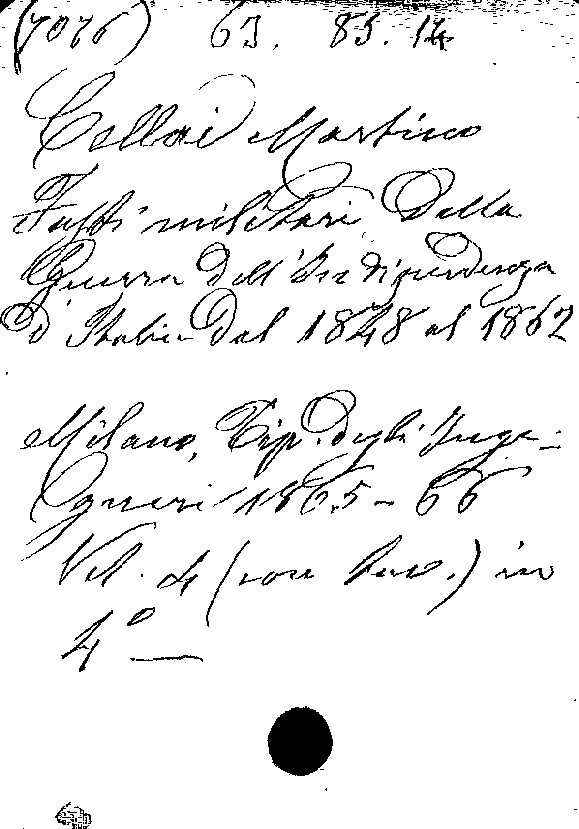 (7076) 63. 83. 14
Cellai Martino
Fasti militari della
Guerra dell'Indipendenza
d'Italia dal 1848 al 1862
Milano, Tip. degli Inge-
gneri 1865-66
Vol. 4 (con tav.) in
4º —